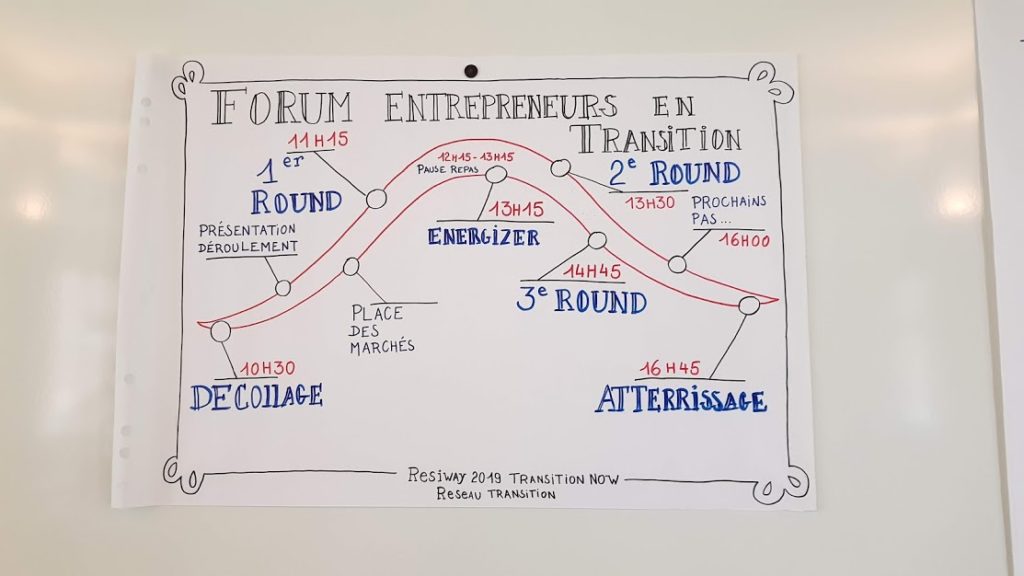 FORUM ENTREPRENEURS EN
TRANSITION
11H15
1er
ROUND
12H15-13H15
PAUSE REPAS
2e ROUND
13H30
PROCHAINS
PAS...
16H00
13H15
ENERGIZER
PRÉSENTATION
DÉROULEMENT
14H45
3e ROUND
PLACE
DES
MARCHÉS
10H30
DECOLLAGE
16H45
ATTERRISSAGE
RESIWAY 2019 TRANSITION NOW
RESEAU TRANSITION